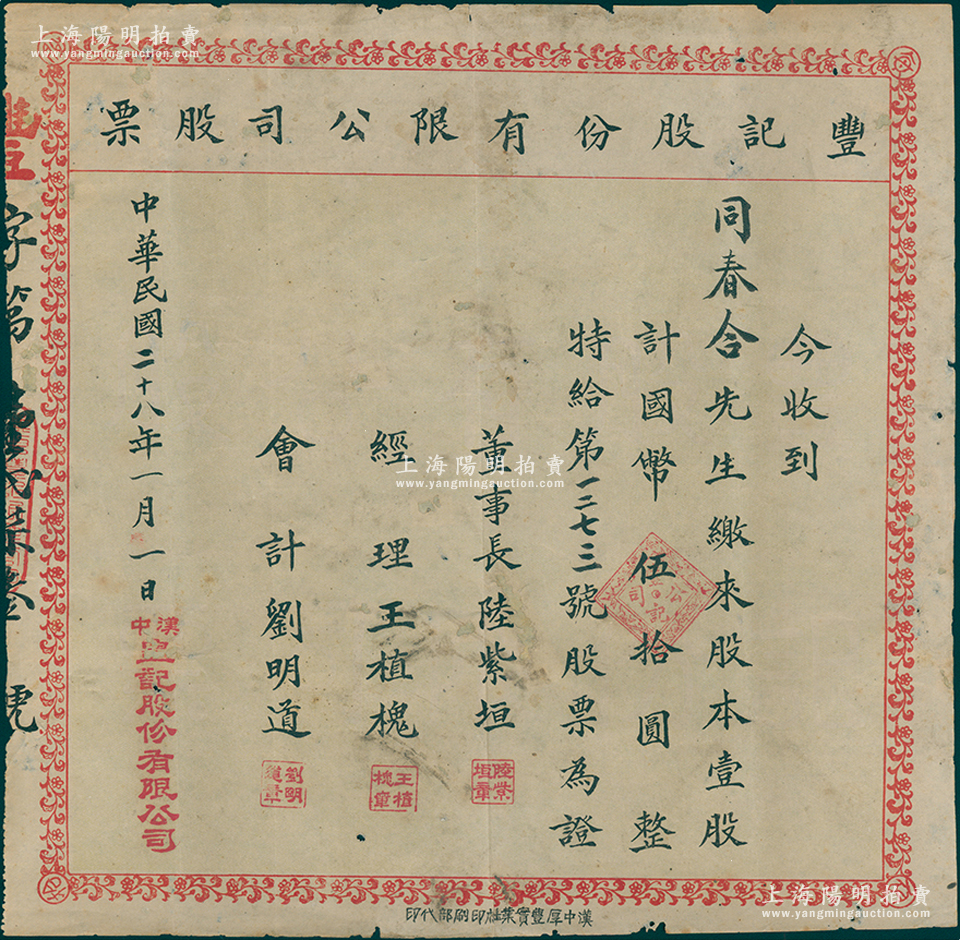 上海陽明拍賣
www.yangmingauction.com
豐記股份有限公司股票
今收到
同春合先生繳來股本壹股
計國幣伍拾圓整
特給第一二七三號股票為證
公司
記
董事長陸紫垣
陸紫垣章
經理王植槐
王植槐章
會計劉明道
劉明道章
中華民國二十八年一月一日
漢中
豐記股份有限公司
字第
號
上海陽明拍賣
www.yangmingauction.com
漢中厚豐實業社印刷部代印
上海陽明拍賣
www.yangmingauction.com